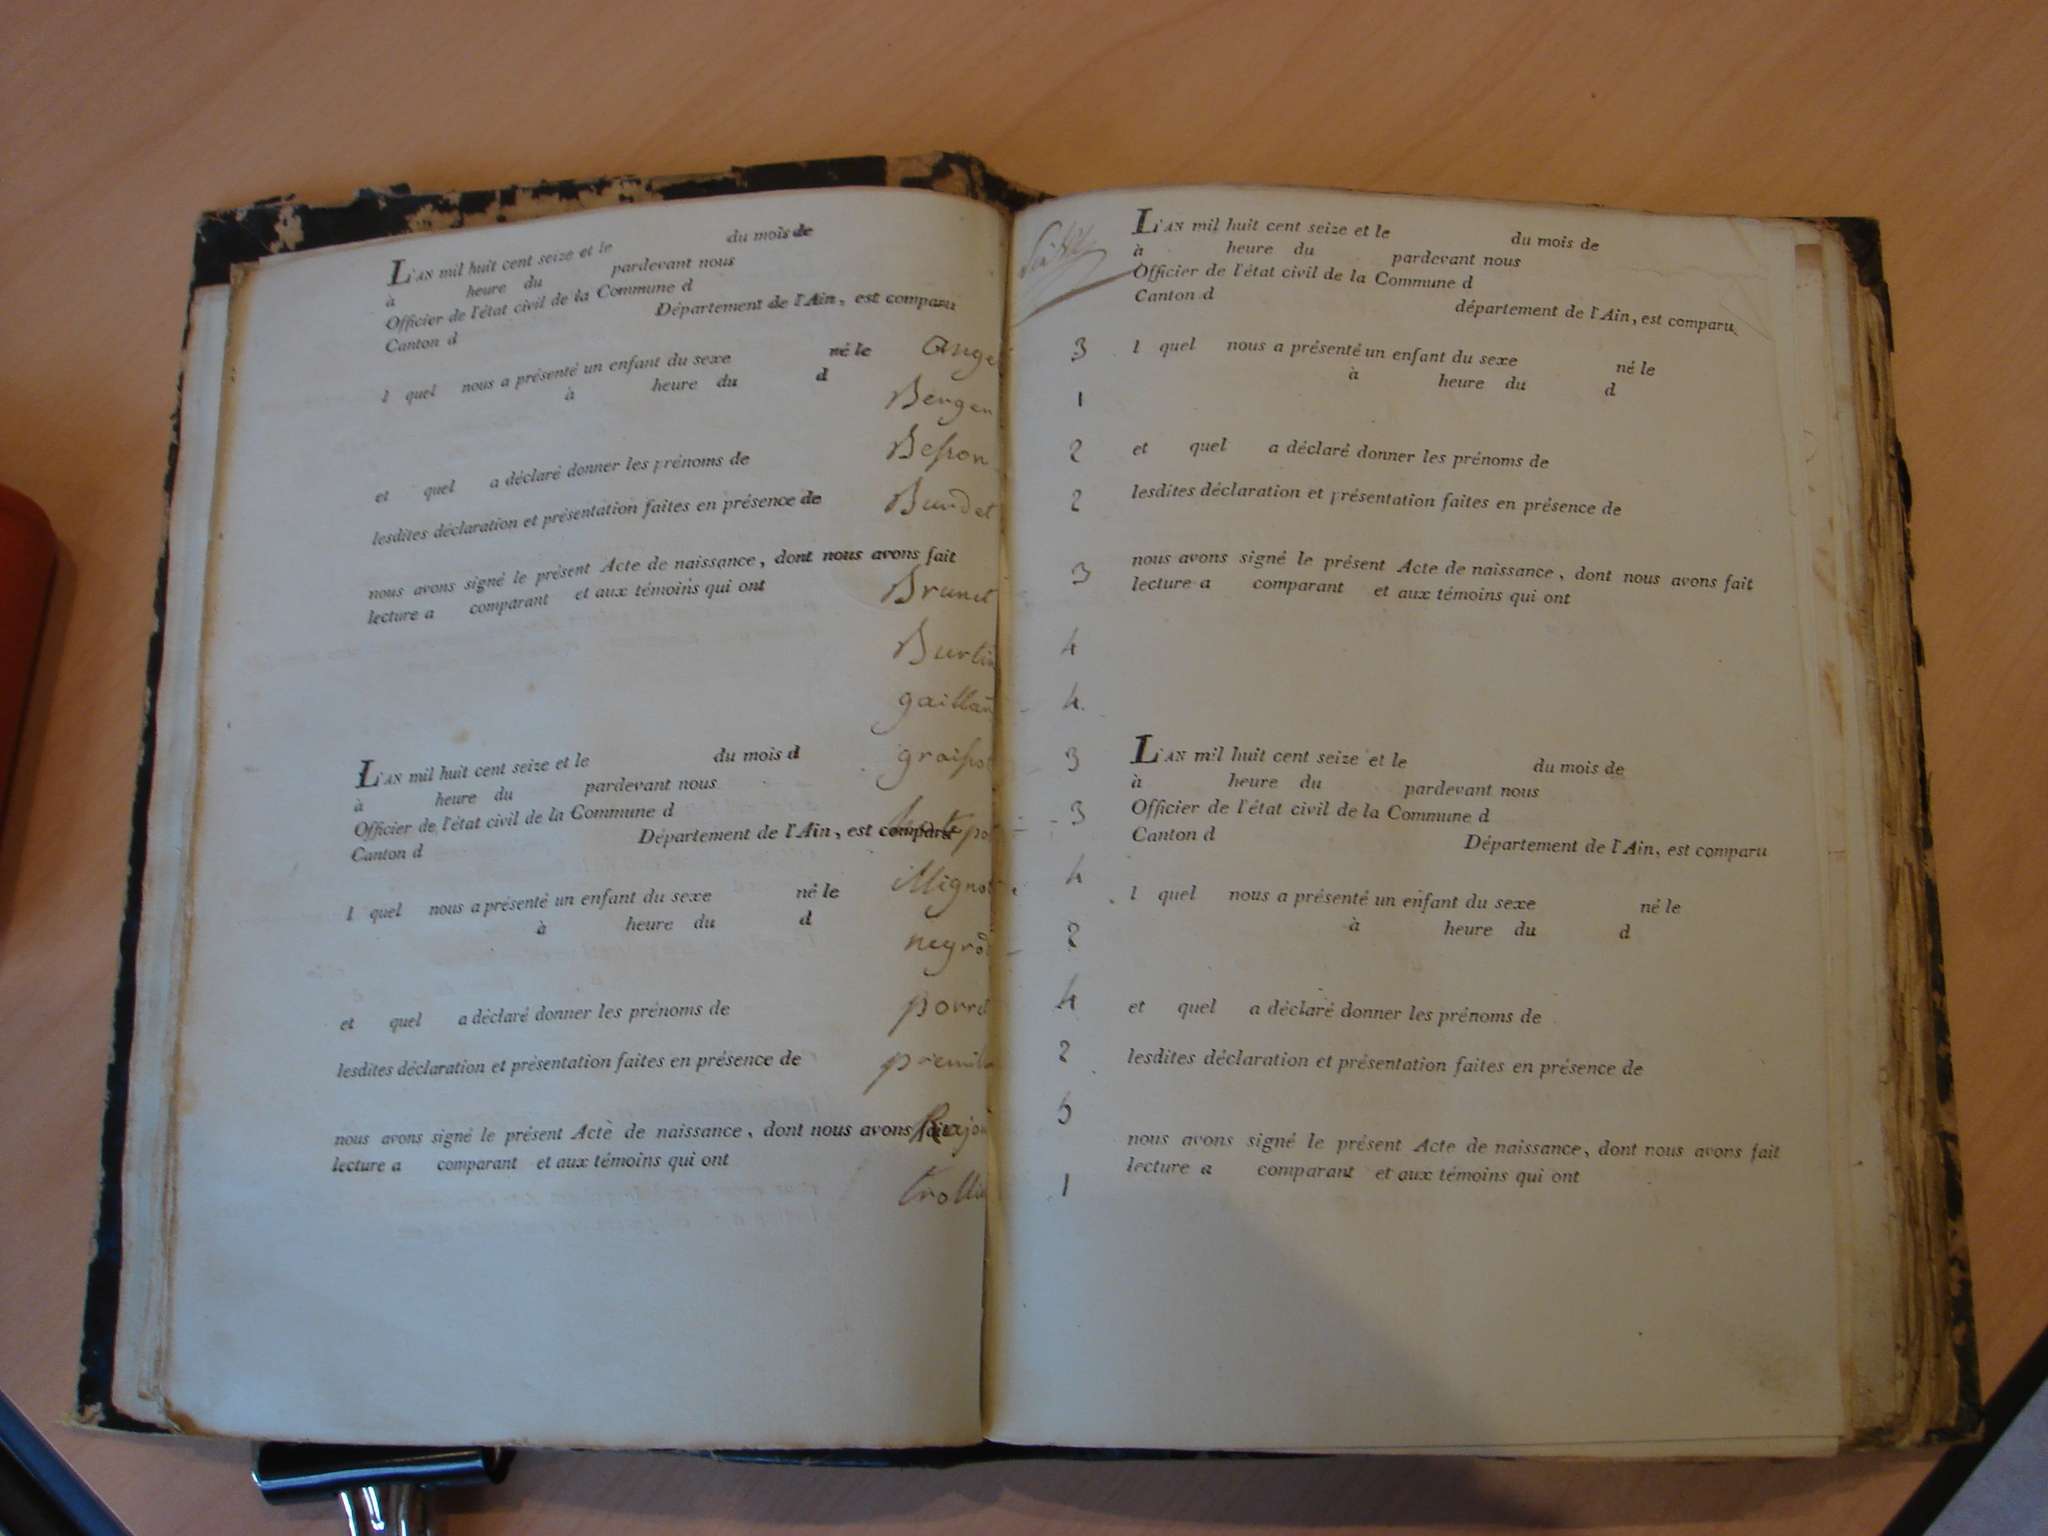 L'AN mil huit cent seize et le du mois de
à heure du pardevant nous
Officier de l'état civil de la Commune d
Canton d Département de l'Ain, est comparu
l quel nous a présenté un enfant du sexe né le
à heure du d
et quel a déclaré donner les prénoms de
lesdites déclaration et présentation faites en présence de
nous avons signé le présent Acte de naissance, dont nous avons fait
lecture a comparant et aux témoins qui ont
L'AN mil huit cent seize et le du mois d
à heure du pardevant nous
Officier de l'état civil de la Commune d
Canton d Département de l'Ain, est comparu
l quel nous a présenté un enfant du sexe né le
à heure du d
et quel a déclaré donner les prénoms de
lesdites déclaration et présentation faites en présence de
nous avons signé le présent Acte de naissance, dont nous avons fait
lecture a comparant et aux témoins qui ont
Ange
Berger
Besson
Burdet
Brunet
Burtin
gaillar
Mignot
porret
3
1
2
2
3
4
4
3
3
4
2
4
2
5
1
L'AN mil huit cent seize et le du mois de
à heure du pardevant nous
Officier de l'état civil de la Commune d
Canton d département de l'Ain, est comparu
l quel nous a présenté un enfant du sexe né le
à heure du d
et quel a déclaré donner les prénoms de
lesdites déclaration et présentation faites en présence de
nous avons signé le présent Acte de naissance, dont nous avons fait
lecture a comparant et aux témoins qui ont
L'AN mil huit cent seize et le du mois de
à heure du pardevant nous
Officier de l'état civil de la Commune d
Canton d Département de l'Ain, est comparu
l quel nous a présenté un enfant du sexe né le
à heure du d
et quel a déclaré donner les prénoms de
lesdites déclaration et présentation faites en présence de
nous avons signé le présent Acte de naissance, dont nous avons fait
lecture a comparant et aux témoins qui ont